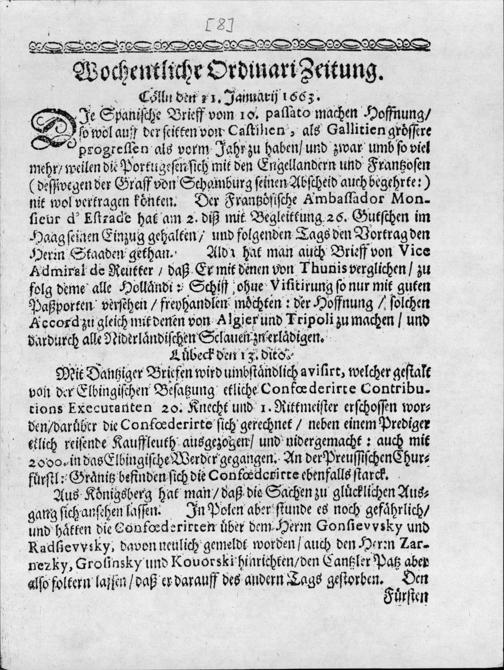 [8]
Wochentliche Ordinari Zeitung.
Cölln den 11. Januarij 1663.
DJe Spanische Brieff vom 10. passato machen Hoffnung/
so wol auff der seitten von Castilien, als Gallitien grössere
progressen als vorm Jahr zu haben/ und zwar umb so viel
mehr/ weilen die Portugesen sich mit den Engellandern und Frantzosen
(desswegen der Graff von Schomburg seinen Abscheid auch begehrte:)
nit wol vertragen könten. Der Frantzösische Ambassador Mon-
sieur d' Estrade hat am 2. diß mit Begleittung 26. Gutschen im
Haag seinen Einzug gehalten/ und folgenden Tags den Vortrag den
Herrn Staaden gethan. Alda hat man auch Brieff von Vice
Admiral de Reutter/ daß Er mit denen von Thunis verglichen/ zu
folg deme alle Holländi: Schiff/ ohne Visitirung so nur mit guten
Paßporten versehen/ frey handlen möchten: der Hoffnung/ solchen
Accord zu gleich mit denen von Algier und Tripoli zu machen/ und
dardurch alle Niderländischen Sclauen zu erlädigen.
Lübeck den 13. dito.
Mit Dantziger Briefen wird umbständlich avisirt, welcher gestalt
von der Elbingischen Besatzung etliche Confœderirte Contribu-
tions Executanten 20. Knecht und 1. Rittmeister erschossen wor-
den/ darüber die Confœderirte sich gerechnet/ neben einem Prediger
etlich reisende Kauffleuth ausgezogen/ und nidergemacht: auch mit
2000. in das Elbingische Werder gegangen. An der Preussischen Chur-
fürstl: Gränitz befinden sich die Confœdcrirte ebenfalls starck.
Aus Königsberg hat man/ daß die Sachen zu glücklichen Aus-
gang sich ansehen lassen. In Polen aber stunde es noch gefährlich/
und hätten die Confœderirten über dem Herrn Gonsievvsky und
Radsievvsky, davon neulich gemeldt worden/ auch den Herrn Zar-
nezky, Grosinsky und Kovorski hinrichten/ den Cantzler Patz aber
also foltern lassen/ daß er darauff des andern Tags gestorben. Den
Fürsten